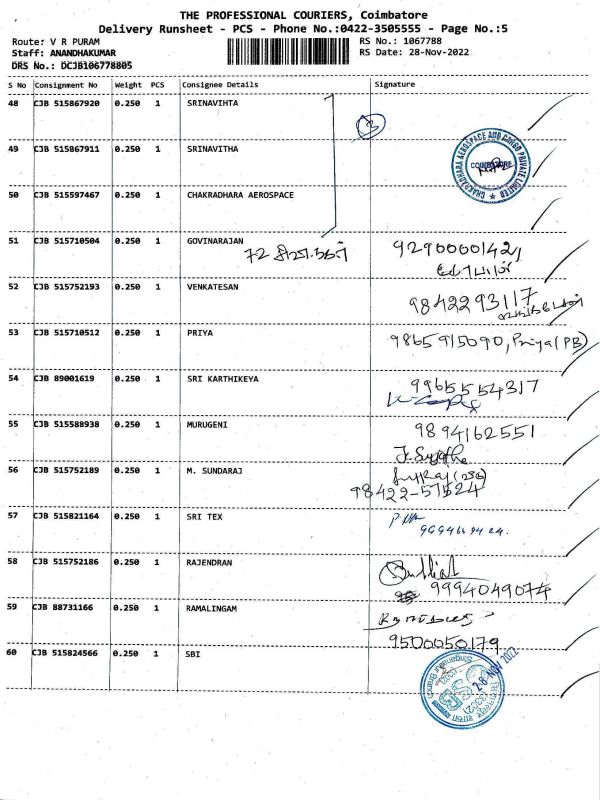 THE PROFESSIONAL COURIERS, Coimbatore
Delivery Runsheet - PCS - Phone No.:0422-3505555 - Page No.:5
Route: V R PURAM
RS No.: 1067788
Staff: ANANDHAKUMAR
RS Date: 28-Nov-2022
DRS No.: DCJB106778805
S No Consignment No Weight PCS Consignee Details Signature
48 CJB 515867920 0.250 1 SRINAVIHTA
3
49 CJB 515867911 0.250 1 SRINAVITHA
CHAKRADHARA AEROSPACE AND CARGO PRIVATE LIMITED
COIMBATORE
50 CJB 515597467 0.250 1 CHAKRADHARA AEROSPACE
51 CJB 515710504 0.250 1 GOVINARAJAN
72
52 CJB 515752193 0.250 1 VENKATESAN 9842293117
53 CJB 515710512 0.250 1 PRIYA 9865915090, Priya (PB)
54 CJB 89001619 0.250 1 SRI KARTHIKEYA 9965554317
55 CJB 515588938 0.250 1 MURUGENI 9894162551
56 CJB 515752189 0.250 1 M. SUNDARAJ
98422-57524
57 CJB 515821164 0.250 1 SRI TEX
58 CJB 515752186 0.250 1 RAJENDRAN
9994049074
59 CJB 88731166 0.250 1 RAMALINGAM
9500050179
60 CJB 515824566 0.250 1 SBI
28 NOV 2022